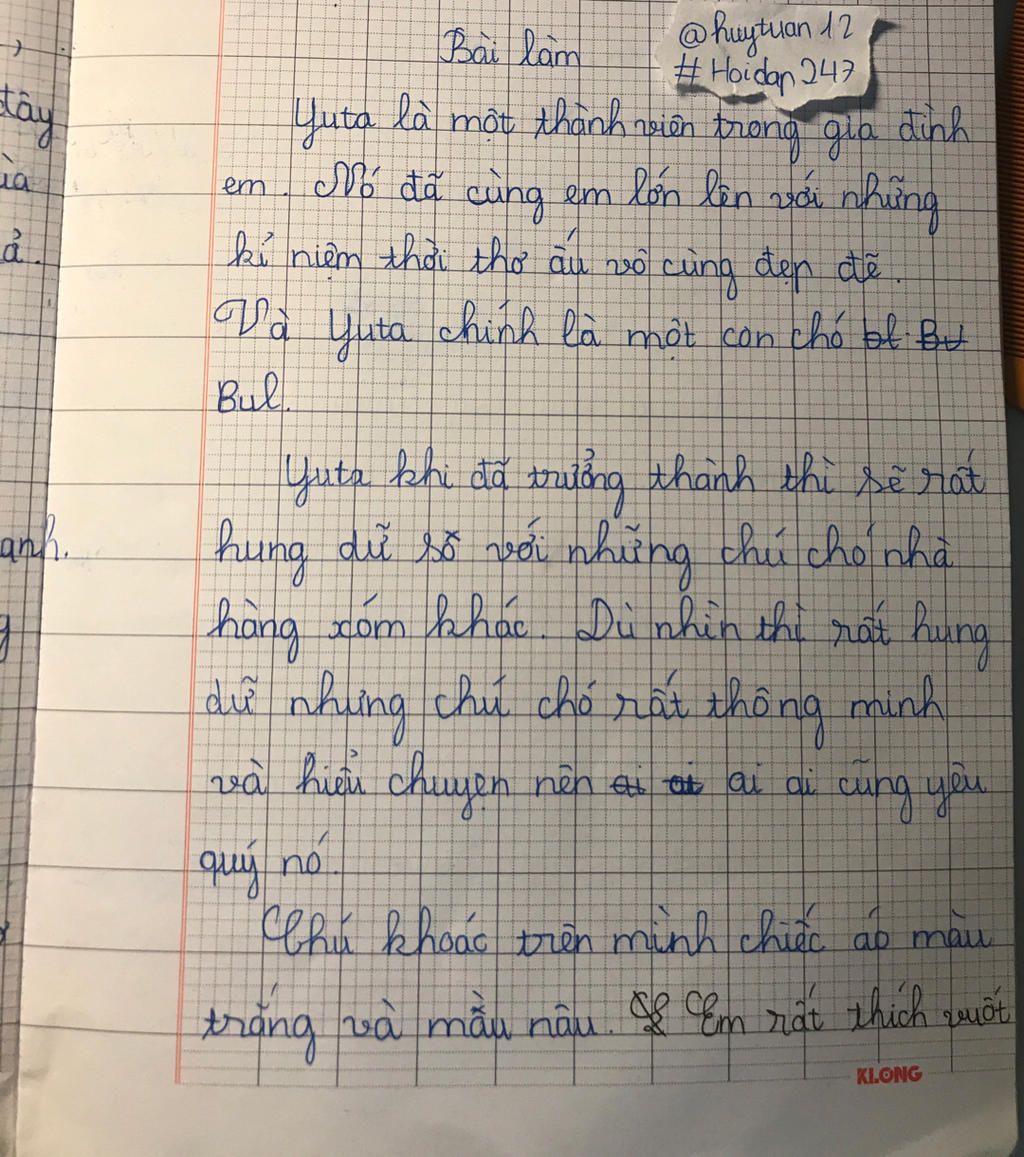 Bài làm
@huytuan12
#Hoidap247
Yuta là một thành viên trong gia đình
em. Nó đã cùng em lớn lên với những
kỉ niệm thời thơ ấu vô cùng đẹp đẽ.
Và Yuta chính là một con chó bl Bu
Bul.
Yuta khi đã trưởng thành thì sẽ rất
hung dữ số với những chú chó nhà
hàng xóm khác. Dù nhìn thì rất hung
dữ nhưng chú chó rất thông minh
và hiểu chuyện nên ai ai ai ai cũng yêu
quý nó.
Chú khoác trên mình chiếc áo màu
trắng và mầu nâu. Em rất thích vuốt
KLONG
,
tây
ìa
ả.
anh.
g